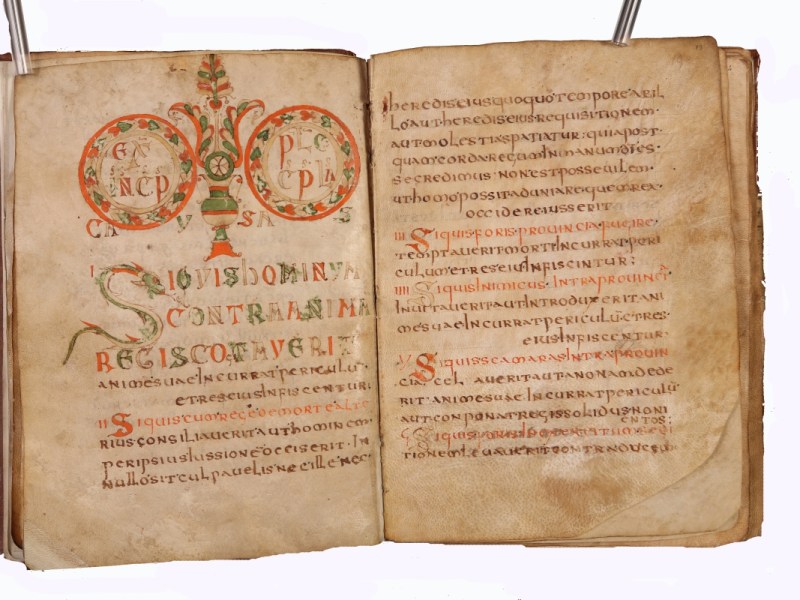 CA V SA S
I SIQVIS hOMINVM
CONTRA ANIMA
REGIS COTAVERIT
ANIMESVAE INCURRAT PERICULU
ET RES EIUS INFISCENTUR
II SIQUIS CUM REGE DE MORTE ALTE
RIUS CONSILIAVERIT AUT HOMINEM
PER IPSIUS IUSSIONE OCCISERIT IN
NULLO SIT CULPAVELIS NEC ILLE NEC
HEREDIS EIUS QUOQUO TEMPORE AB IL
LO AUT HEREDIS EIUS REQUISITIONEM
AUT MOLESTIAS PATIATUR QUIA POST
QUAM CORDA REGUM IN MANUM DEI ES
SE CREDIMUS NON EST POSSEVILEM
UT HOMO POSSIT ADUNIARE QUEM REX
OCCIDERE IUSSERIT
III SIQUIS FORIS PROVINCIA FUGIRE
TEMPTAVERIT MORTI INCURRAT PERI
CULUM ET RES EIUS INFISCINTUR
IIII SIQUIS INIMICUS INTRA PROVINCIA
INVITAVERIT AUT INTRODUXERIT ANI
MESVAE INCURRAT PERICULU ET RES
EIUS INFISCENTUR
V SIQUIS SCAMARAS INTRA PROVIN
CIA CEL AVERIT AUT ANONAM DEDE
RIT ANIMESVAE INCURRAT PERICULU
AUT CONPONAT REGI SSOLIDUS NONI
ENTOS